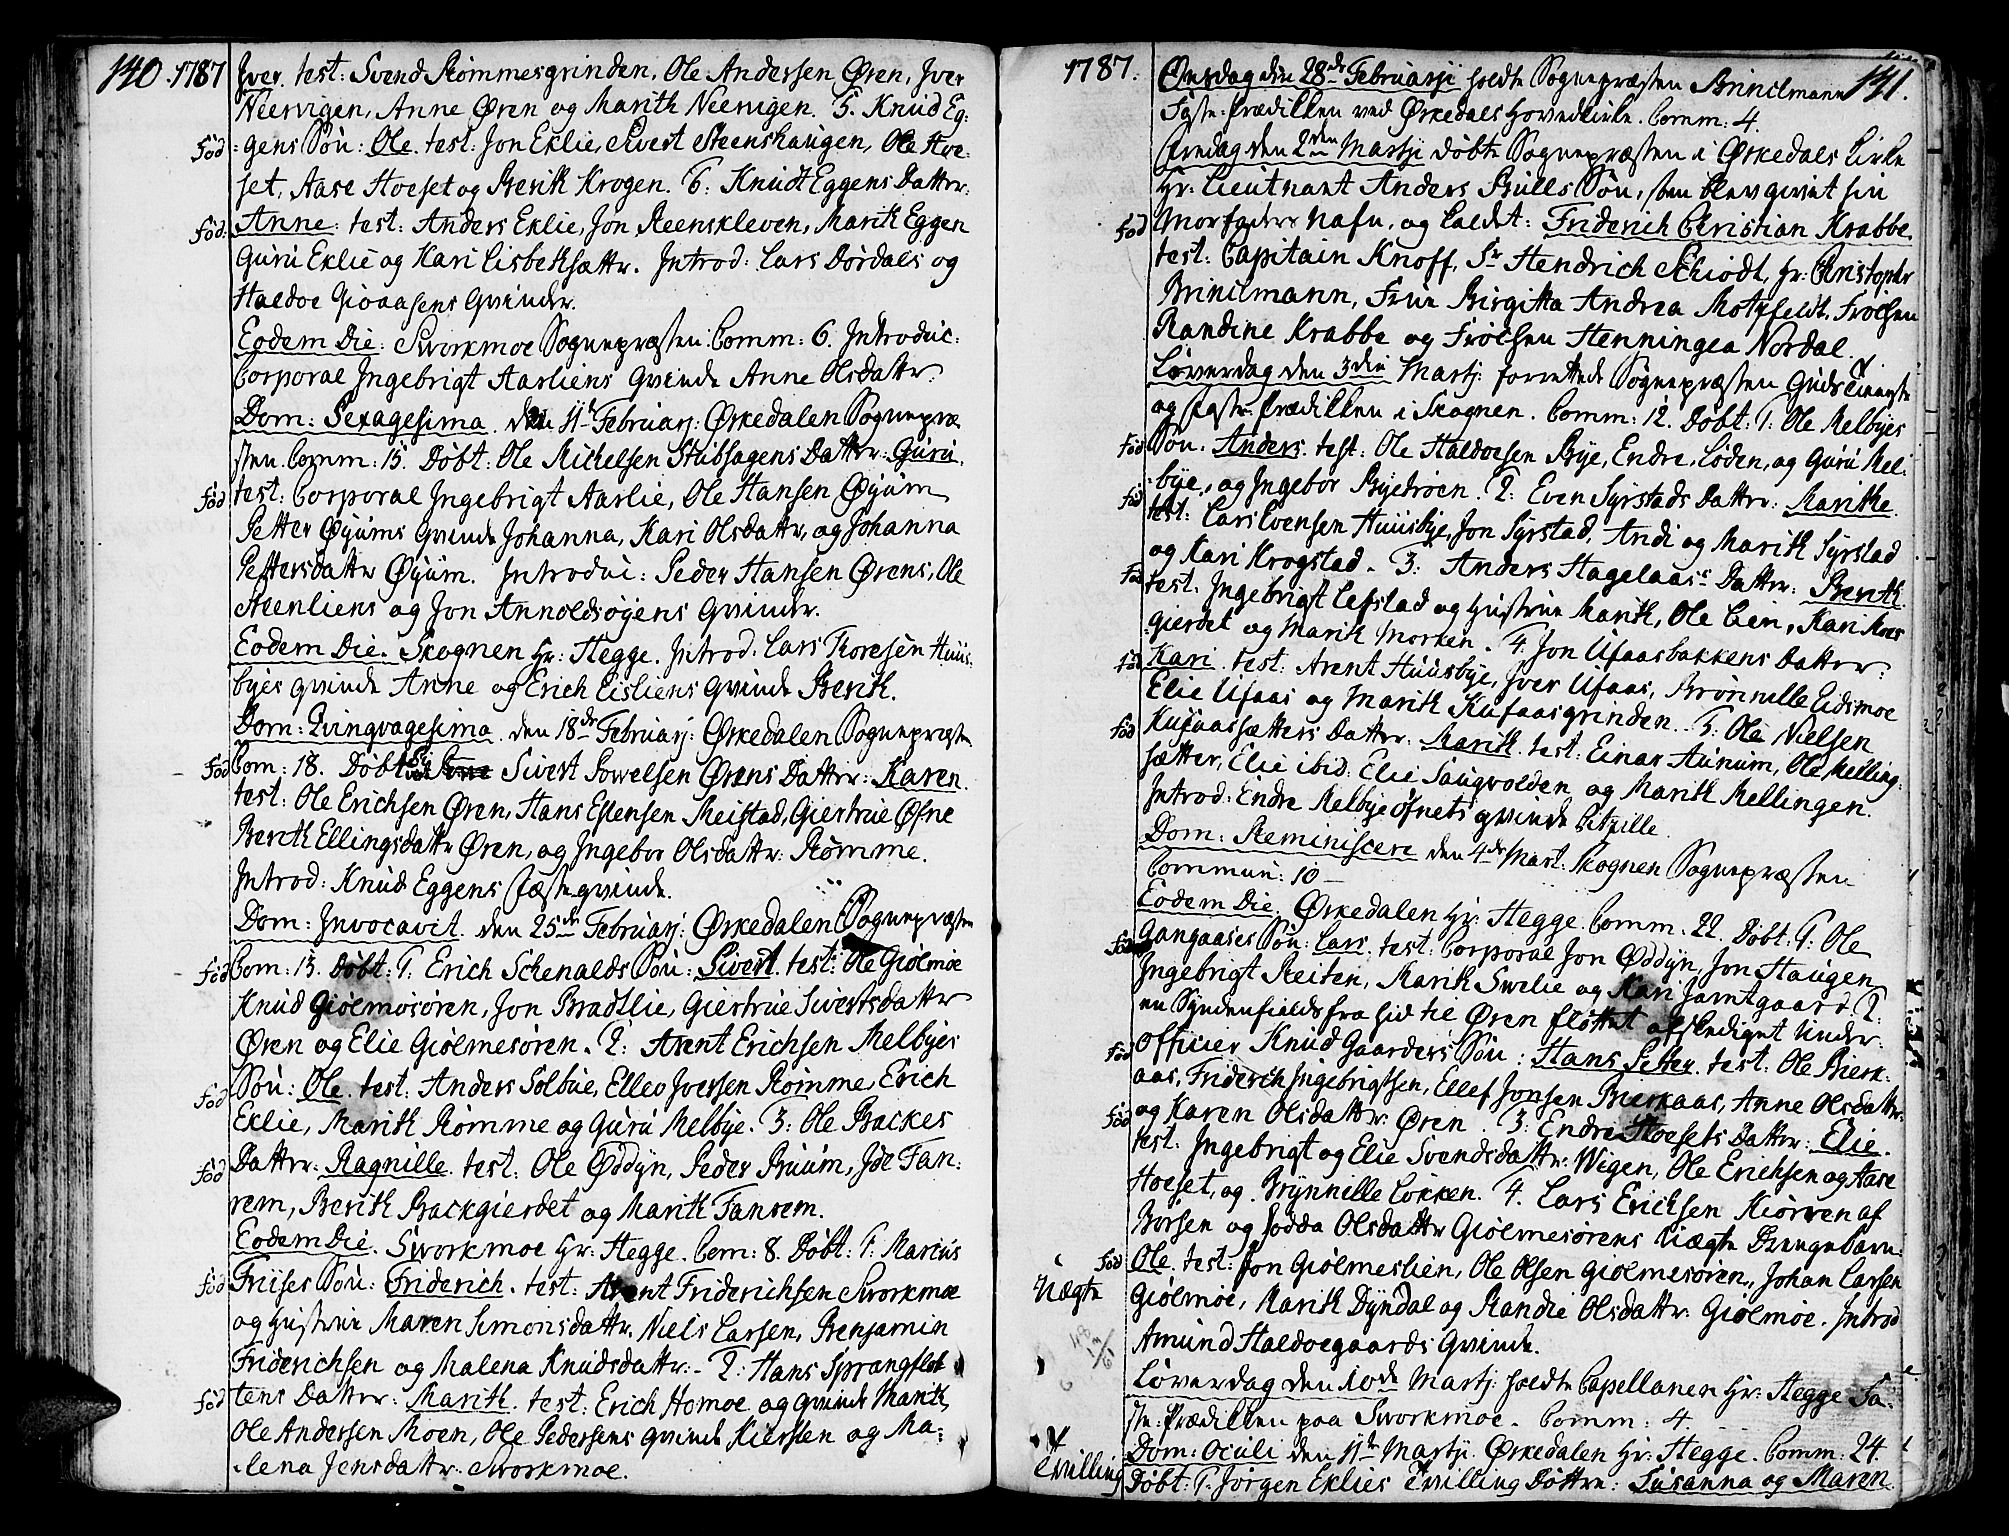 140. 1787
Jver. test: Svend Rømmesgrinden, Ole Andersen Øren, Jver
Neervigen, Anne Øren og Marith Neervigen. 5. Knud Eg:
Fød :gens Søn: Ole. test: Jon Eklie, Sivert Steenshaugen, Ole Hoe:
set, Aase Hoeset og Berith Krogen. 6: Knud Eggens Datter:
Fød: Anne: test: Anders Eklie, Jon Reenskleven, Marith Eggen
Guru Eklie og Kari Lisbethsættr. Introd: Lars Dørdals og
Haldoe Gioaasens Qvinder.
Eodem Die: Sworkmoe Sognepræsten: Comm: 6. Introduc:
Corporal Ingebrigt Aarliens Qvinde Anne Olsdattr.
Dom: Sexagesima. den 11te Februarj: Ørkedalen Sognepræ
sten. Comm: 15. Døbt: Ole Michelsen Stubsagens Datter: Guru.
Fød test: Corporal Ingebrigt Aarlie, Ole Hansen Øyum
Petter Øyums Qvinde Johanna, Kari Olsdattr, og Johanna
Pettersdattr Øyum. Introduc: Peder Hansen Ørens, Ole
Steenliens og Jon Annoldsøyens Qvinder.
Eodem Die. Skognen Hr: Hegge. Introd. Lars Thoresen Huus:
byes Qvinde Anne og Erich Lisliens Qvinde Berith.
Dom: Qvinqvagesima. den 18de Februarj: Ørkedalen Sognepræsten
Fød Com: 18. Døbt Sivert Powelsen Ørens Datter: Karen.
test: Ole Erichsen Øren, Hans Estensen Meistad, Giertrue Øfne
Berith Ellingsdattr Øren, og Ingebor Olsdattr: Rømme.
Introd: Knud Eggens Fæsteqvinde.
Dom: Invocavit. den 25de Februarj: Ørkedalen Sognepræsten
Fød Com: 15. Døbt: 1. Erich Schenalds Søn: Sivert. test: Ole Giølmoe
Knud Giølmosøren, Jon Bradtlie, Giertrue Sivertsdattr
Øren og Elie Giølmesøren. 2: Arent Erichsen Melbyes
Fød Søn: Ole. test: Anders Solbue, Ellev Joersen Rømme, Erich
Eklie, Marith Rømme og Guru Melbye. 3: Ole Backes
Fød Datter: Ragnille. test: Ole Øddyn, Peder Bruum, Ide Fan:
rem, Berith Backgierdet og Marith Fanrem.
Eodem Die. Sworkmoe Hr: Hegge. Com: 8. Døbt: 1. Marcus
Fød Friises Søn: Friderich. test: Arent Friderichsen Sworkmoe
og Hustrue Maren Simonsdattr. Niels Larsen, Benjamin
Friderichsen og Malena Knudsdattr: 2: Hans Sprangflot
Fød tens Datter: Marith. test: Erich Homoe og qvinde Marith,
Ole Andersen Moen, Ole Pedersens Qvinde Kiersten og Ma:
:lena Jensdattr. Sworkmoe.
1787. 141.
Onsdag den 28de Februarji holdte Sognepræsten Brinchmann
Faste-Prædicken ved Ørkedals Hovedkirke. Comm: 4.
Fredag den 2den Martji døbte Sognepræsten i Ørkedals Kirke
Hr: Lieutnant Anders Bulls Søn, som blev givet sin
Fød Morfaders Nafn, og kaldet: Friderich Christian Krabbe.
test: Capitain Knoff, Sr Hendrich Schiodt, Hr: Christopher
Brinchmann, Frue Birgitta Andrea Motzfeldt, Frøchen
Randine Krabbe og Frøchen Henningea Nordal.
Løverdag den 3die Martj: forrettede Sognepræsten Gudstieneste
og Faste-Prædicken i Skognen. Comm: 12. Døbt: 1. Ole Melbyes
Fød Søn: Anders. test: Ole Haldoesen Bye, Endre Loden, og Guru Mel:
:bye, og Ingebor Byetrøen. 2: Even Syrstads Datter: Marithe.
Fød test: Lars Evensen Huusbye, Jon Syrstad, Andi og Marith Syrstad
og Kari Krogstad. 3: Anders Hagelaas's Datter: Berith.
Fød test: Ingebrigt Lefstad og Hustrue Marith, Ole Lien, Kari Moes
gierdet og Marith Morken. 4. Jon Ufaasbakkens Datter
Fød Kari. test: Arent Huusbye, Jver Ufaas, Brønnille Eidsmoe
Elie Ufaas og Marith Kufaasgrinden. 5: Ole Nielsen
Fød Kufaassætters Datter: Marith. test: Einar Aunum, Ole Melling:
sætter, Elie ibid: Elie Saugvolden og Marith Mellingen.
Introd: Endre Melbyeøfnets Qvinde Citzille.
Dom: Reminiscere den 4de Mart: Skognen Sognepræsten
Commun: 10
Eodem Die. Ørkedalen Hr: Hegge. Comm. 22. Døbt: 1: Ole
Fød Gangaases Søn: Lars. test: Corporal Jon Øddyn, Jon Haugen
Ingebrigt Reiten, Marith Swelie og Kari Jamtgaard. 2:
en Syndenfields fra hid til Øren fløttet afskediget Under:
Fød Officier Knud Gaarders Søn: Hans Petter. test: Ole Bierk:
aas, Friderich Ingebrigtsen, Ellef Jonsen Bierkaas, Anne Olsdattr.
Fød og Karen Olsdattr: Øren. 3: Endre Hoesets Datter: Elie.
test: Ingebrigt og Elie Svendsdattr: Wigen, Ole Erichsen og Aase
Hoeset, og Brynnille Løkken. 4. Lars Erichsen Kiørren af
Borsen og Fodda Olsdattr Giølmesørens Uægte Drengebarn:
Fød Uægte Ole. test: Jon Giølmeslien, Ole Olsen Giølmesøren, Johan Larsen
Giølmoe, Marith Dyndal og Randie Olsdattr: Giølmoe. Introd
Amund Haldoegaards Qvinde.
Løverdag den 10de Martj: holdte Capellanen Hr: Hegge Fa:
ste-Prædicken paa Sworkmoe. Comm: 4
Dom: Oculi den 11te Martji. Ørkedalen Hr: Hegge. Comm: 24.
Tvilling Døbt: 1. Jørgen Eklies Tvilling Døttre: Susanna og Maren